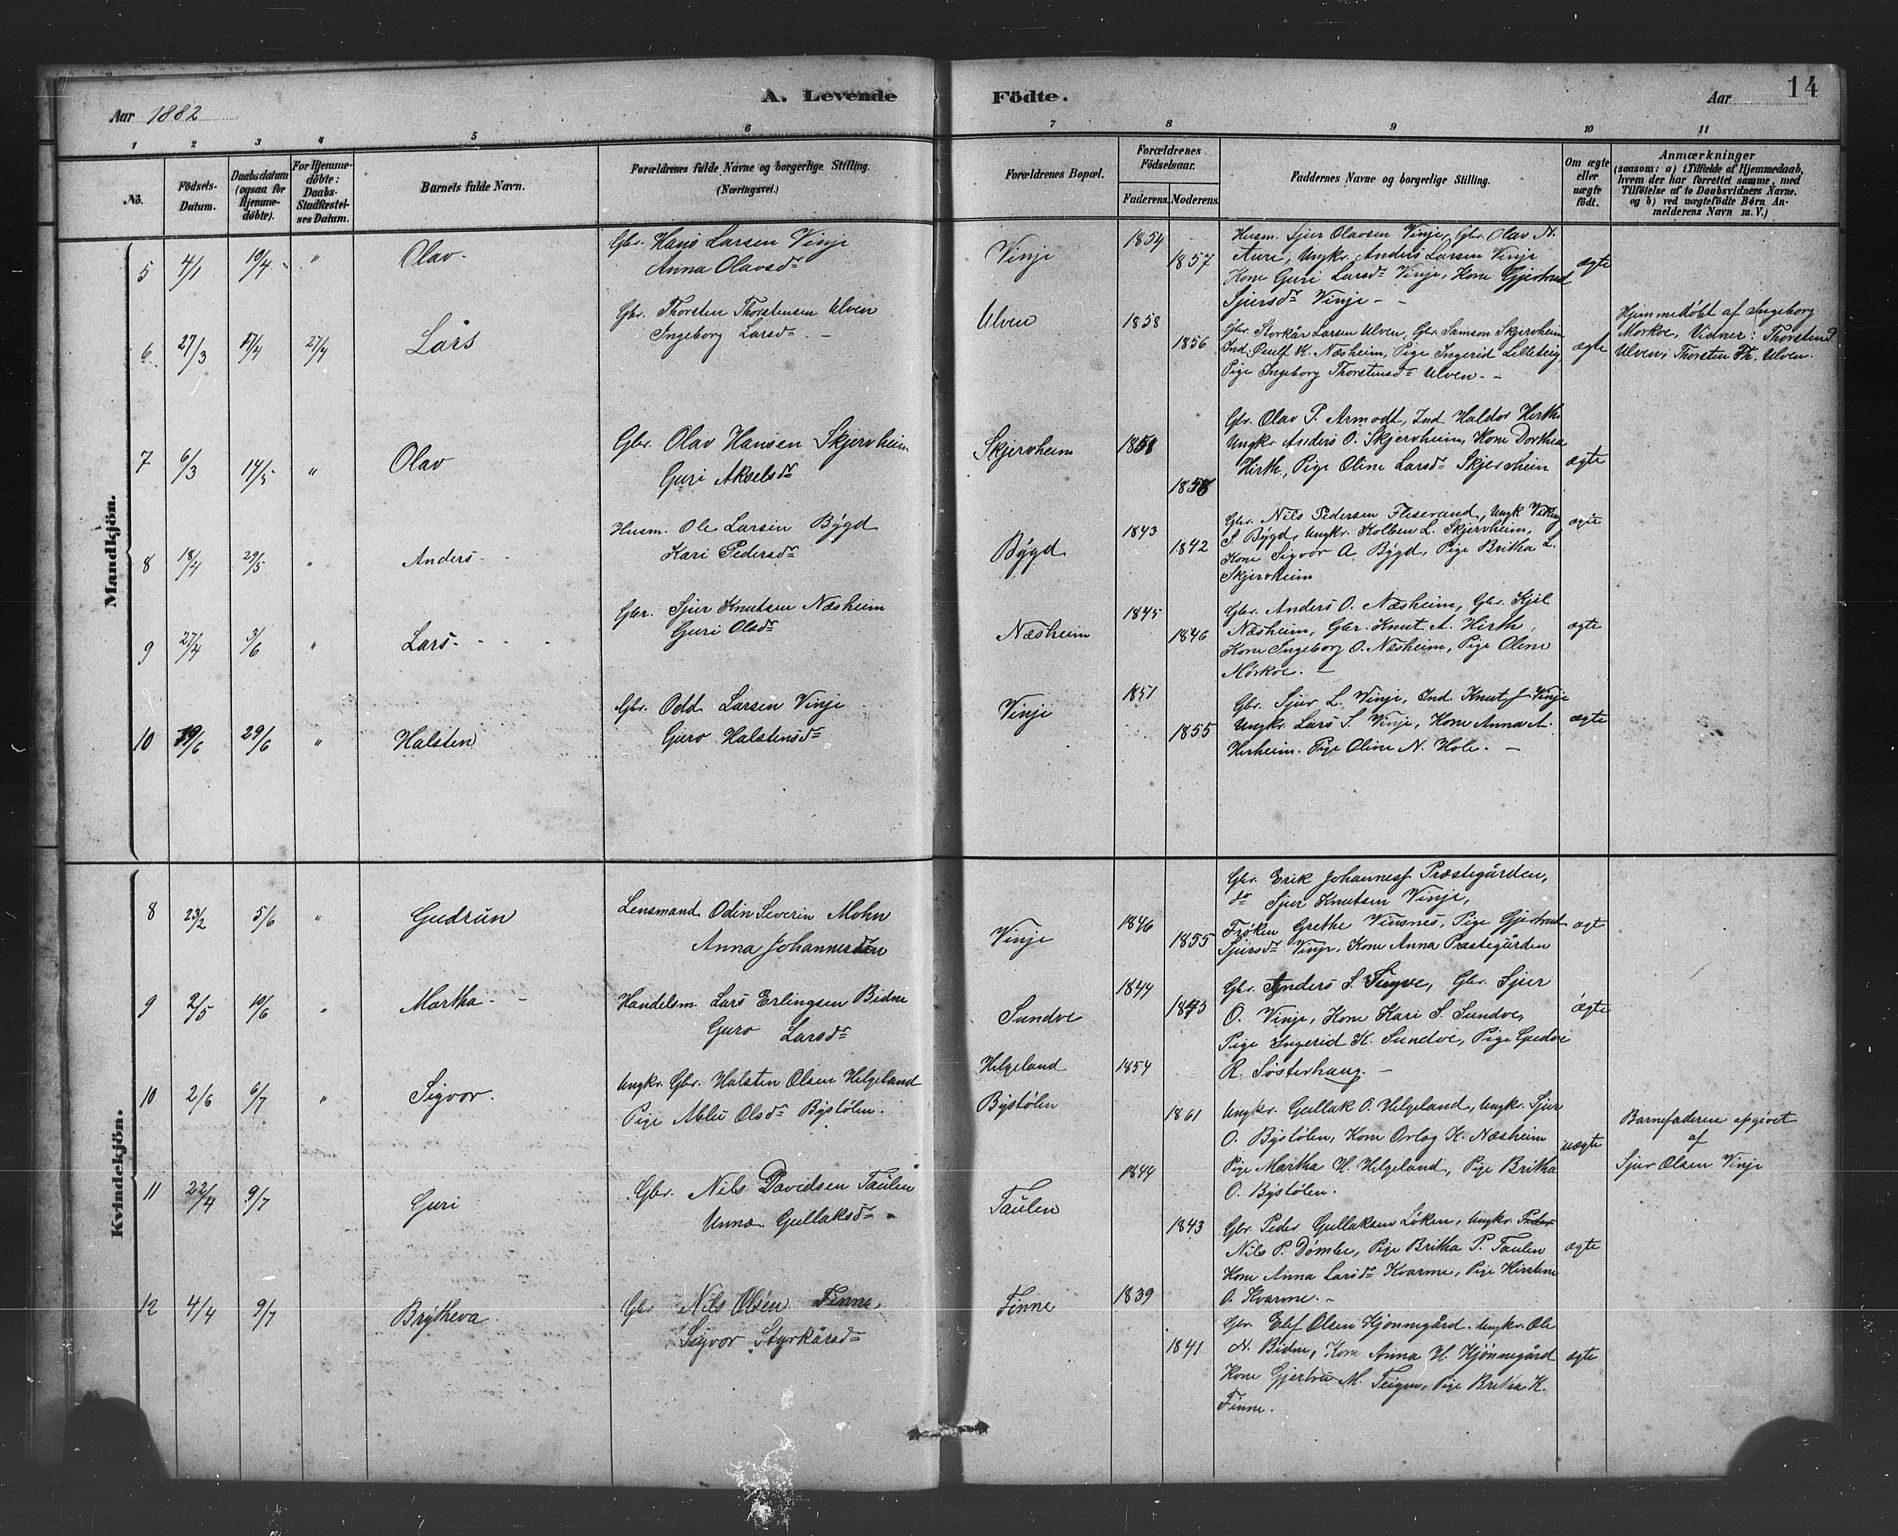 Aar 1882
A. Levende
Födte.
Aar
14
1 2 3 4 5 6 7 8 9 10 11
No.
Födsels-Datum.
Daabsdatum (ogsaa for Hjemme-döbte).
For Hjemme-döbte: Daabs-Stadfæstel-ses Datum.
Barnets fulde Navn.
Forældrenes fulde Navne og borgerlige Stilling. (Næringsvei.)
Forældrenes Bopæl.
Forældrenes Födselsaar.
Faderens. Moderens.
Faddernes Navne og borgerlige Stilling.
Om ægte eller uægte födt.
Anmærkninger
(saasom: a) i Tilfælde af Hjemmedaab,
hvem der har forrettet samme, med
Tilföielse af to Daabsvidners Navne.
og b) ved uægtefödte Börn An-
melderens Navn m. V.)
Mandkjön.
5 4/1 10/4 " Olav.
Gbr. Hans Larsen Vinje
Anna Olavsdr
Vinje 1854 1857
Husm. Sjur Olavsen Vinje, Gbr. Olav N.
Aure, Ungkr. Anders Larsen Vinje
Kone Guri Larsdr Vinje, Kone Gjertrud
Sjursdr Vinje -
ægte
6 27/3 17/4 27/4 Lars
Gbr. Thorsten Thorstensen Ulven
Ingeborg Larsdr -
Ulven 1858 1856
Gbr. Storkår Larsen Ulven, Gbr. Samson Skjervheim
Ind. K. Næsheim, Pige Ingerid Lilleteig,
Pige Ingeborg Thorstensdr Ulven. -
ægte
Hjemmedøbt af Ingeborg
Mørkve, Vidner: Thorstend.
Ulven, Thorsten Th. Ulven.
7 6/3 14/5 " Olav
Gbr. Olav Hansen Skjervheim
Guri Akselsdr
Skjervheim 1851 1858
Gbr. Olav P. Armodt, Ind Haldor Hirth
Ungkr. Anders O. Skjervheim, Kone Dorthea
Hirth, Pige Oline Larsdr Skjervheim
ægte
8 18/4 29/5 " Anders
Husm. Ole Larsen Bÿgd
Kari Pedersdr
Bÿgd 1843 1842
Gbr. Nils Pedersen Flisrand, Ungk Viking
S Bÿgd, Ungkr. Kolben L. Skjervheim,
Kone Sigvor A Bÿgd, Pige Britha L.
Skjervheim
ægte
9 27/4 3/6 " Lars
Gbr. Sjur Knutsen Næsheim
Guri Olsdr
Næsheim 1845 1846
Gbr. Anders O. Næsheim, Gbr. Kjel
Næsheim, Gbr. Knut A. Hirth,
Kone Ingeborg O. Næsheim, Pige Oline
Mørkve. -
ægte
10 19/6 29/6 " Halsten
Gbr. Odd Larsen Vinje
Guro Halstensdr
Vinje 1851 1855
Gbr. Sjur L. Vinje, Ind. Knut J Vinje
Ungkr Lars S. Vinje, Kone Anna A.
Herheim. Pige Oline N. Hole. -
ægte
Kvindekjön.
8 23/2 5/6 " Gudrun
Lensmand Odin Severin Mohn
Anna Johannesen
Vinje 1846 1855
Gbr. Erik Johannesf Præstegården,
do Sjur Knutsen Vinje,
Frøken Grethe Vinsnes, Pige Gjertrud
Sjursdr Vinje, Kone Anna Præstegården
ægt
9 2/5 10/6 " Martha
Handelsm. Lars Erlingsen Bidne
Guro Larsdr
Sundve 1844
Gbr. Anders S. Tugve, Gbr. Sjur
O. Vinje, Kone Kari S. Sundve,
Pige Ingerid K. Sundve, Pige Gudve
R. Søsterhaug. -
ægte
10 2/6 6/7 " Sigvor.
Ungkr. Gbr. Halsten Olsen Helgeland
Pige Ablu Olsdr Bystølen.
Helgeland
Bystølen
1854 1861
Ungkr. Gullak O. Helgeland, Ungkr. Sjur
O. Bystølen, Kone Orlog K. Næsheim
Pige Martha H. Helgeland, Pige Britha
O. Bystølen.
uægte
Barnefaderen opgivet
af
Sjur Olsen Vinje
11 22/4 9/7 Guri
Gbr. Nils Davidsen Taulen
Unna Gullaksdr
Taulen 1844 1843
Gbr Peder Gullaksen Løken, Ungkr. Peder
Nils P. Dømbe, Pige Britha P. Taulen
Kone Anna Larsdr Kvarme, Pige Kirstine
O. Kvarme. -
ægte
12 4/4 9/7 Brytheva
Gbr Nils Olsen Finne,
Sigvor Styrkårsdr
Finne 1839 1841
Gbr. Elef Olsen Hjønnegård. Ungkr. Ole
N. Bidne, Kone Anna H. Hjønnegård
Kone Gjertru M. Teigen, Pige Britha K.
Finne.
ægte